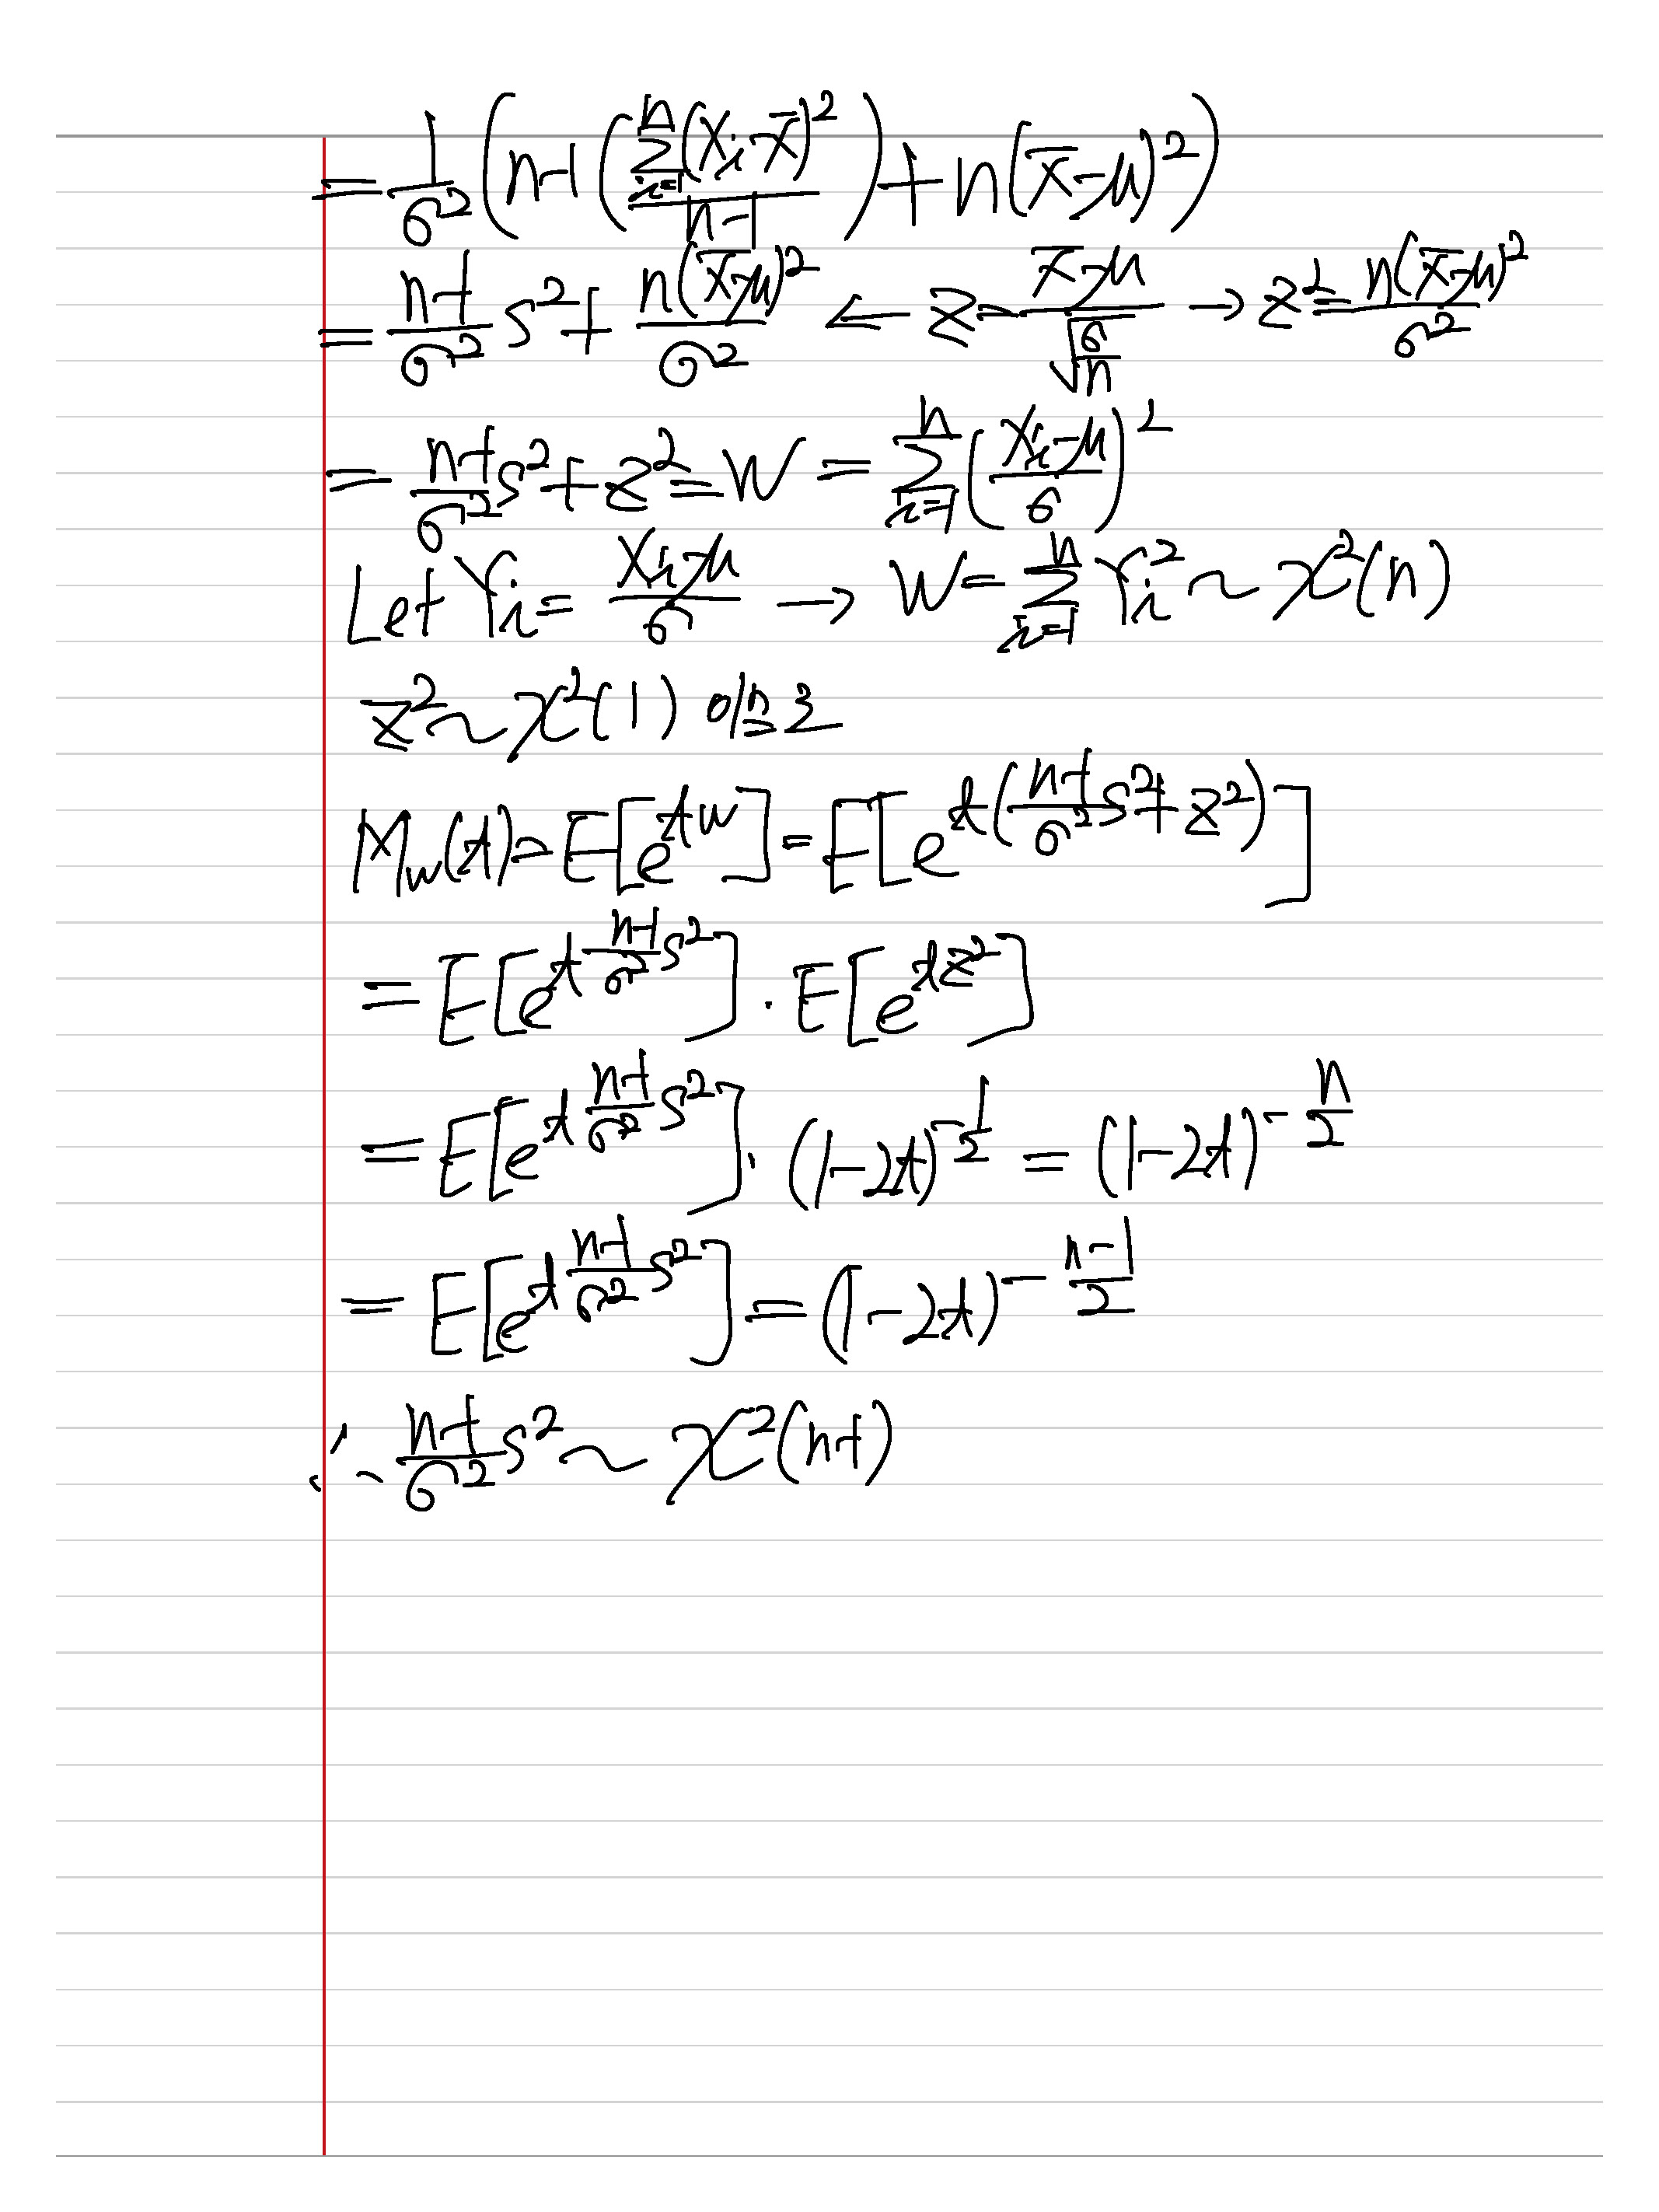 = 1/σ² (n-1 (∑_{i=1}^{n} (Xᵢ-X̄)² / n-1) + n(X̄-μ)²)
= n-1/σ² S² + n(X̄-μ)²/σ² ← Z = X̄-μ / √(σ/n) → Z² = n(X̄-μ)²/σ²
= n-1/σ² S² + Z² = W = ∑_{i=1}^{n} (Xᵢ-μ / σ)²
Let Yᵢ = Xᵢ-μ / σ → W = ∑_{i=1}^{n} Yᵢ² ~ χ²(n)
Z² ~ χ²(1) 이므로
M_W(t) = E[e^{tW}] = E[e^{t(n-1/σ² S² + Z²)}]
= E[e^{t n-1/σ² S²}] · E[e^{tZ²}]
= E[e^{t n-1/σ² S²}] · (1-2t)^{-1/2} = (1-2t)^{-n/2}
= E[e^{t n-1/σ² S²}] = (1-2t)^{-(n-1)/2}
∴ n-1/σ² S² ~ χ²(n-1)